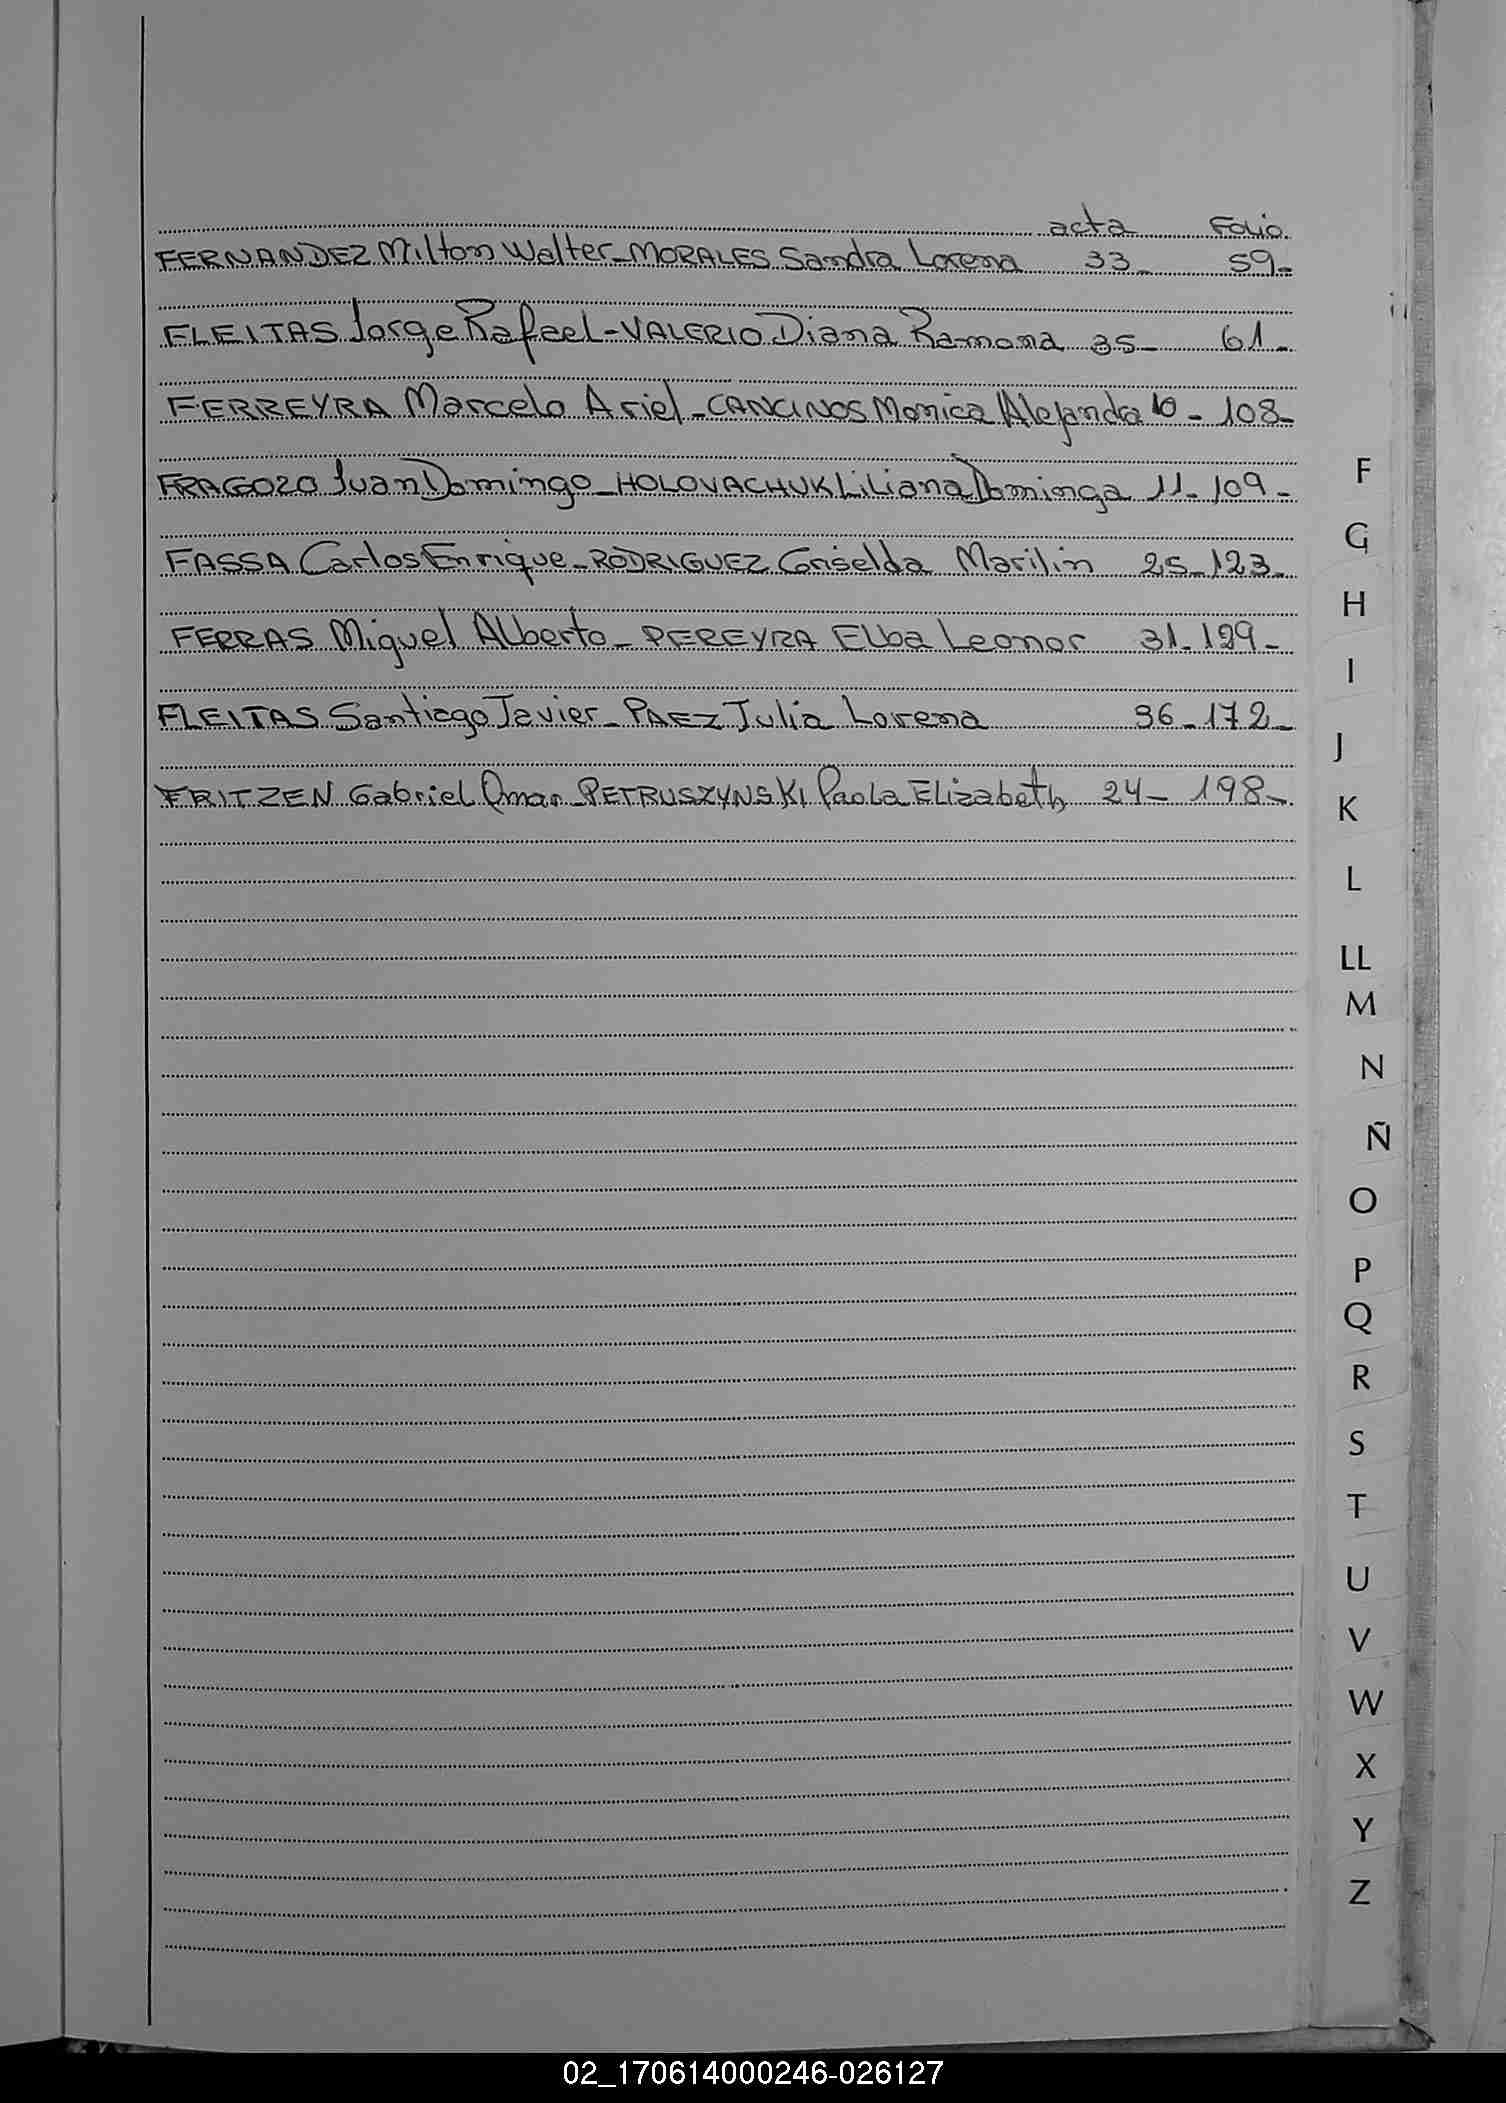 acta Folio.
FERNANDEZ Milton Walter - MORALES Sandra Lorena 33 - 59 -
FLEITAS Jorge Rafael - VALERIO Diana Ramona 35 - 61 -
FERREYRA Marcelo Ariel - CANCINOS Monica Alejandra 10 - 108 -
FRAGOZO Juan Domingo - HOLOVACHUK Liliana Dominga 11 - 109 -
FASSA Carlos Enrique - RODRIGUEZ Griselda Marilin 25 - 123 -
FERRAS Miguel Alberto - PEREYRA Elba Leonor 31 - 129 -
FLEITAS Santiago Javier - PAEZ Julia Lorena 36 - 172 -
FRITZEN Gabriel Omar - PETRUSZYNSKI Paola Elizabeth 24 - 198 -
F
G
H
I
J
K
L
LL
M
N
Ñ
O
P
Q
R
S
T
U
V
W
X
Y
Z
02_170614000246-026127